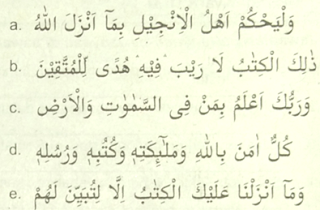 a. وَلْيَحْكُمْ اَهْلُ الْاِنْجِيْلِ بِمَآ اَنْزَلَ اللّٰهُ
b. ذٰلِكَ الْكِتٰبُ لَا رَيْبَ فِيْهِ هُدًى لِّلْمُتَّقِيْنَ
c. وَرَبُّكَ اَعْلَمُ بِمَنْ فِى السَّمٰوٰتِ وَالْاَرْضِ
d. كُلٌّ اٰمَنَ بِاللّٰهِ وَمَلٰٓئِكَتِهٖ وَكُتُبِهٖ وَرُسُلِهٖ
e. وَمَآ اَنْزَلْنَا عَلَيْكَ الْكِتٰبَ اِلَّا لِتُبَيِّنَ لَهُمْ